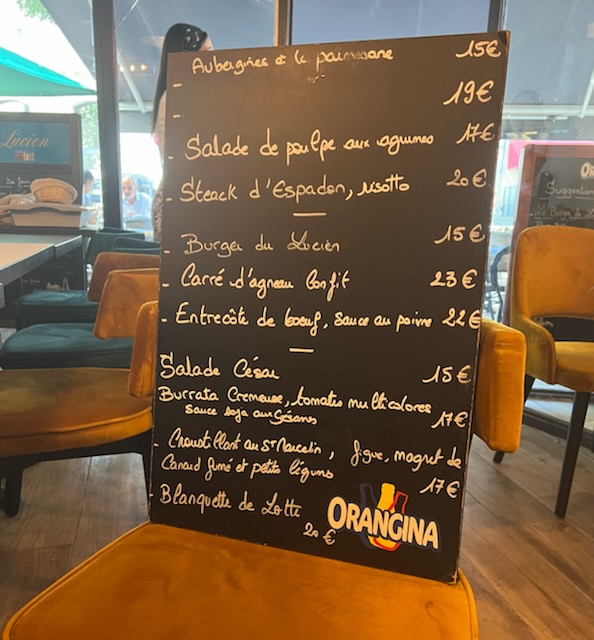 - Aubergines et le parmesane 15€
- 19€
- Salade de poulpe aux agrumes 17€
- Steack d'Espadon, risotto 20€
- Burger du Lucien 15€
- Carré d'agneau Confit 23€
- Entrecôte de boeuf, sauce au poivre 22€
Salade César 15€
Burrata Cremeuse, tomates multicolores
Sauce soja aux Sésames 17€
- Croustillant au St Marcelin, figue, magret de
Canard fumé et petits légums 17€
- Blanquette de Lotte
20€
ORANGINA
Lucien
OR
Suggestions